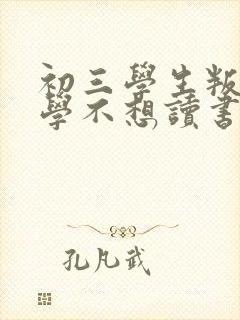 初三學生叛
學不想讀書
孔凡武